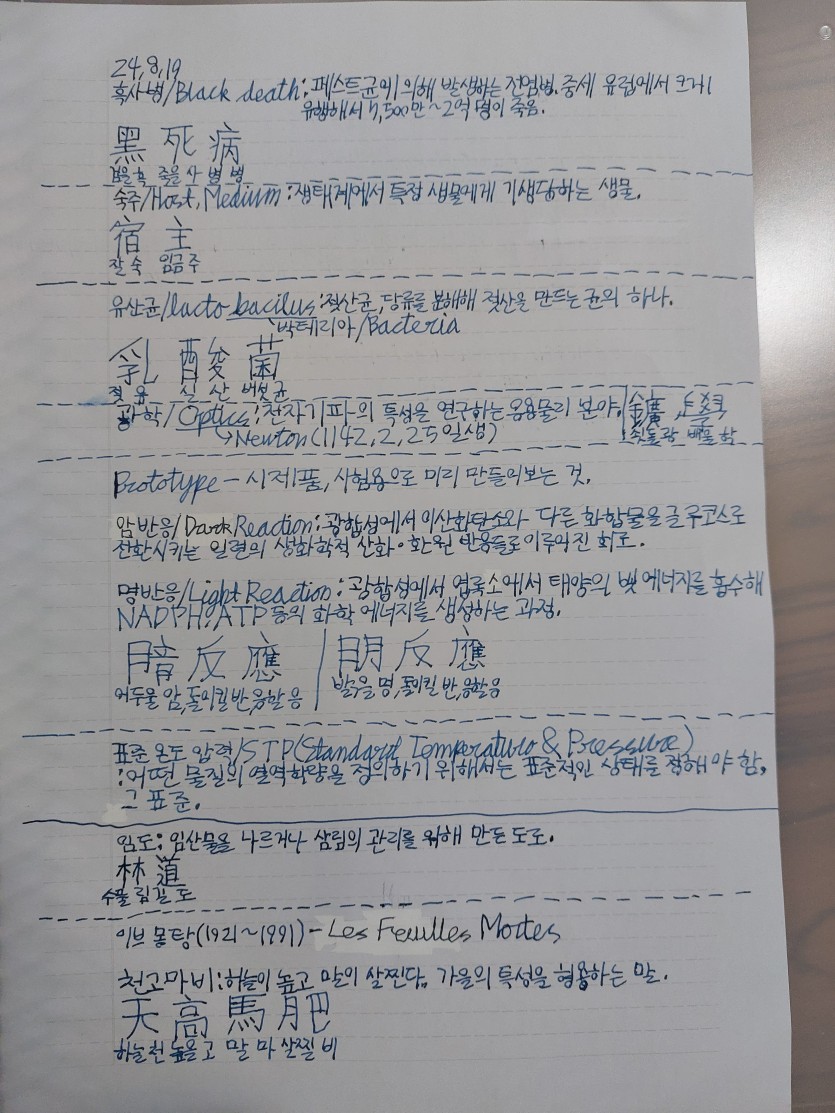 24,8,19
흑사병/Black death: 페스트균에 의해 발생하는 전염병. 중세 유럽에서 크게
유행해서 7,500만~2억 명이 죽음.
黑 死 病
검을 흑 죽을 사 병 병
숙주/Host, Medium: 생태계에서 특정 생물에게 기생당하는 생물.
宿 主
잘 숙 임금 주
유산균/lacto bacilus: 젖산균, 당류를 분해해 젖산을 만드는 균의 하나.
박테리아/Bacteria
乳 酸 菌
젖 유 실 산 버섯 균
광학/Optics: 전자기파의 특성을 연구하는 응용물리 분야.
鑛, 學
쇳돌 광 배울 학
Newton(1142,2,25일생)
Prototype - 시제품, 시험용으로 미리 만들어보는 것.
암반응/Dark Reaction: 광합성에서 이산화탄소와 다른 화합물을 글루코스로
전환시키는 일련의 생화학적 산화·환원 반응들로 이루어진 회로.
명반응/Light Reaction: 광합성에서 엽록소에서 태양의 빛 에너지를 흡수해
NADPH, ATP 등의 화학 에너지를 생성하는 과정.
暗 反 應 | 明 反 應
어두울 암, 돌이킬 반, 응할 응 밝을 명, 돌이킬 반, 응할 응
표준 온도 압력/STP(Standard Temperature & Pressure)
: 어떤 물질의 열역학량을 정의하기 위해서는 표준적인 상태를 정해야 함,
그 표준.
임도: 임산물을 나르거나 삼림의 관리를 위해 만든 도로.
林 道
수풀 림 길 도
이브 몽탕(1921~1991) - Les Feuilles Mortes
천고마비: 하늘이 높고 말이 살찐다. 가을의 특성을 형용하는 말.
天 高 馬 肥
하늘 천 높을 고 말 마 살찔 비